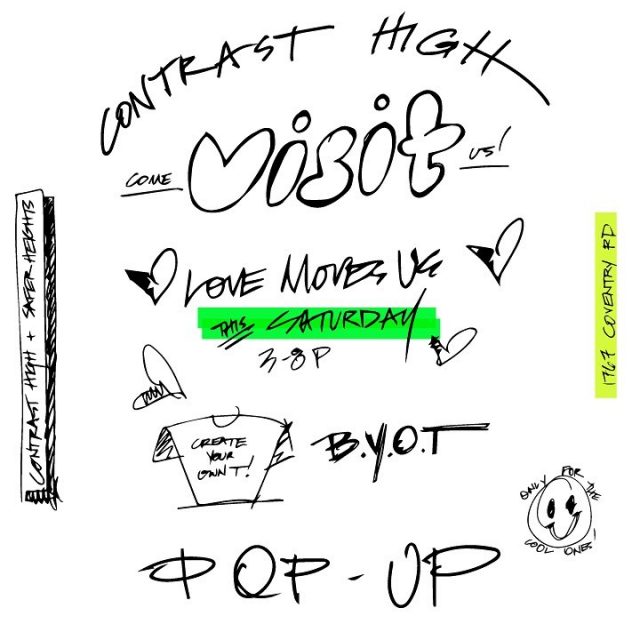 CONTRAST HIGH
COME Visit US!
LOVE MOVES US
THIS SATURDAY
3-8P
CREATE
YOUR
OWN T!
B.Y.O.T
POP-UP
CONTRAST HIGH + SAFER HEIGHTS
1767 COVENTRY RD
ONLY FOR THE
COOL ONES!